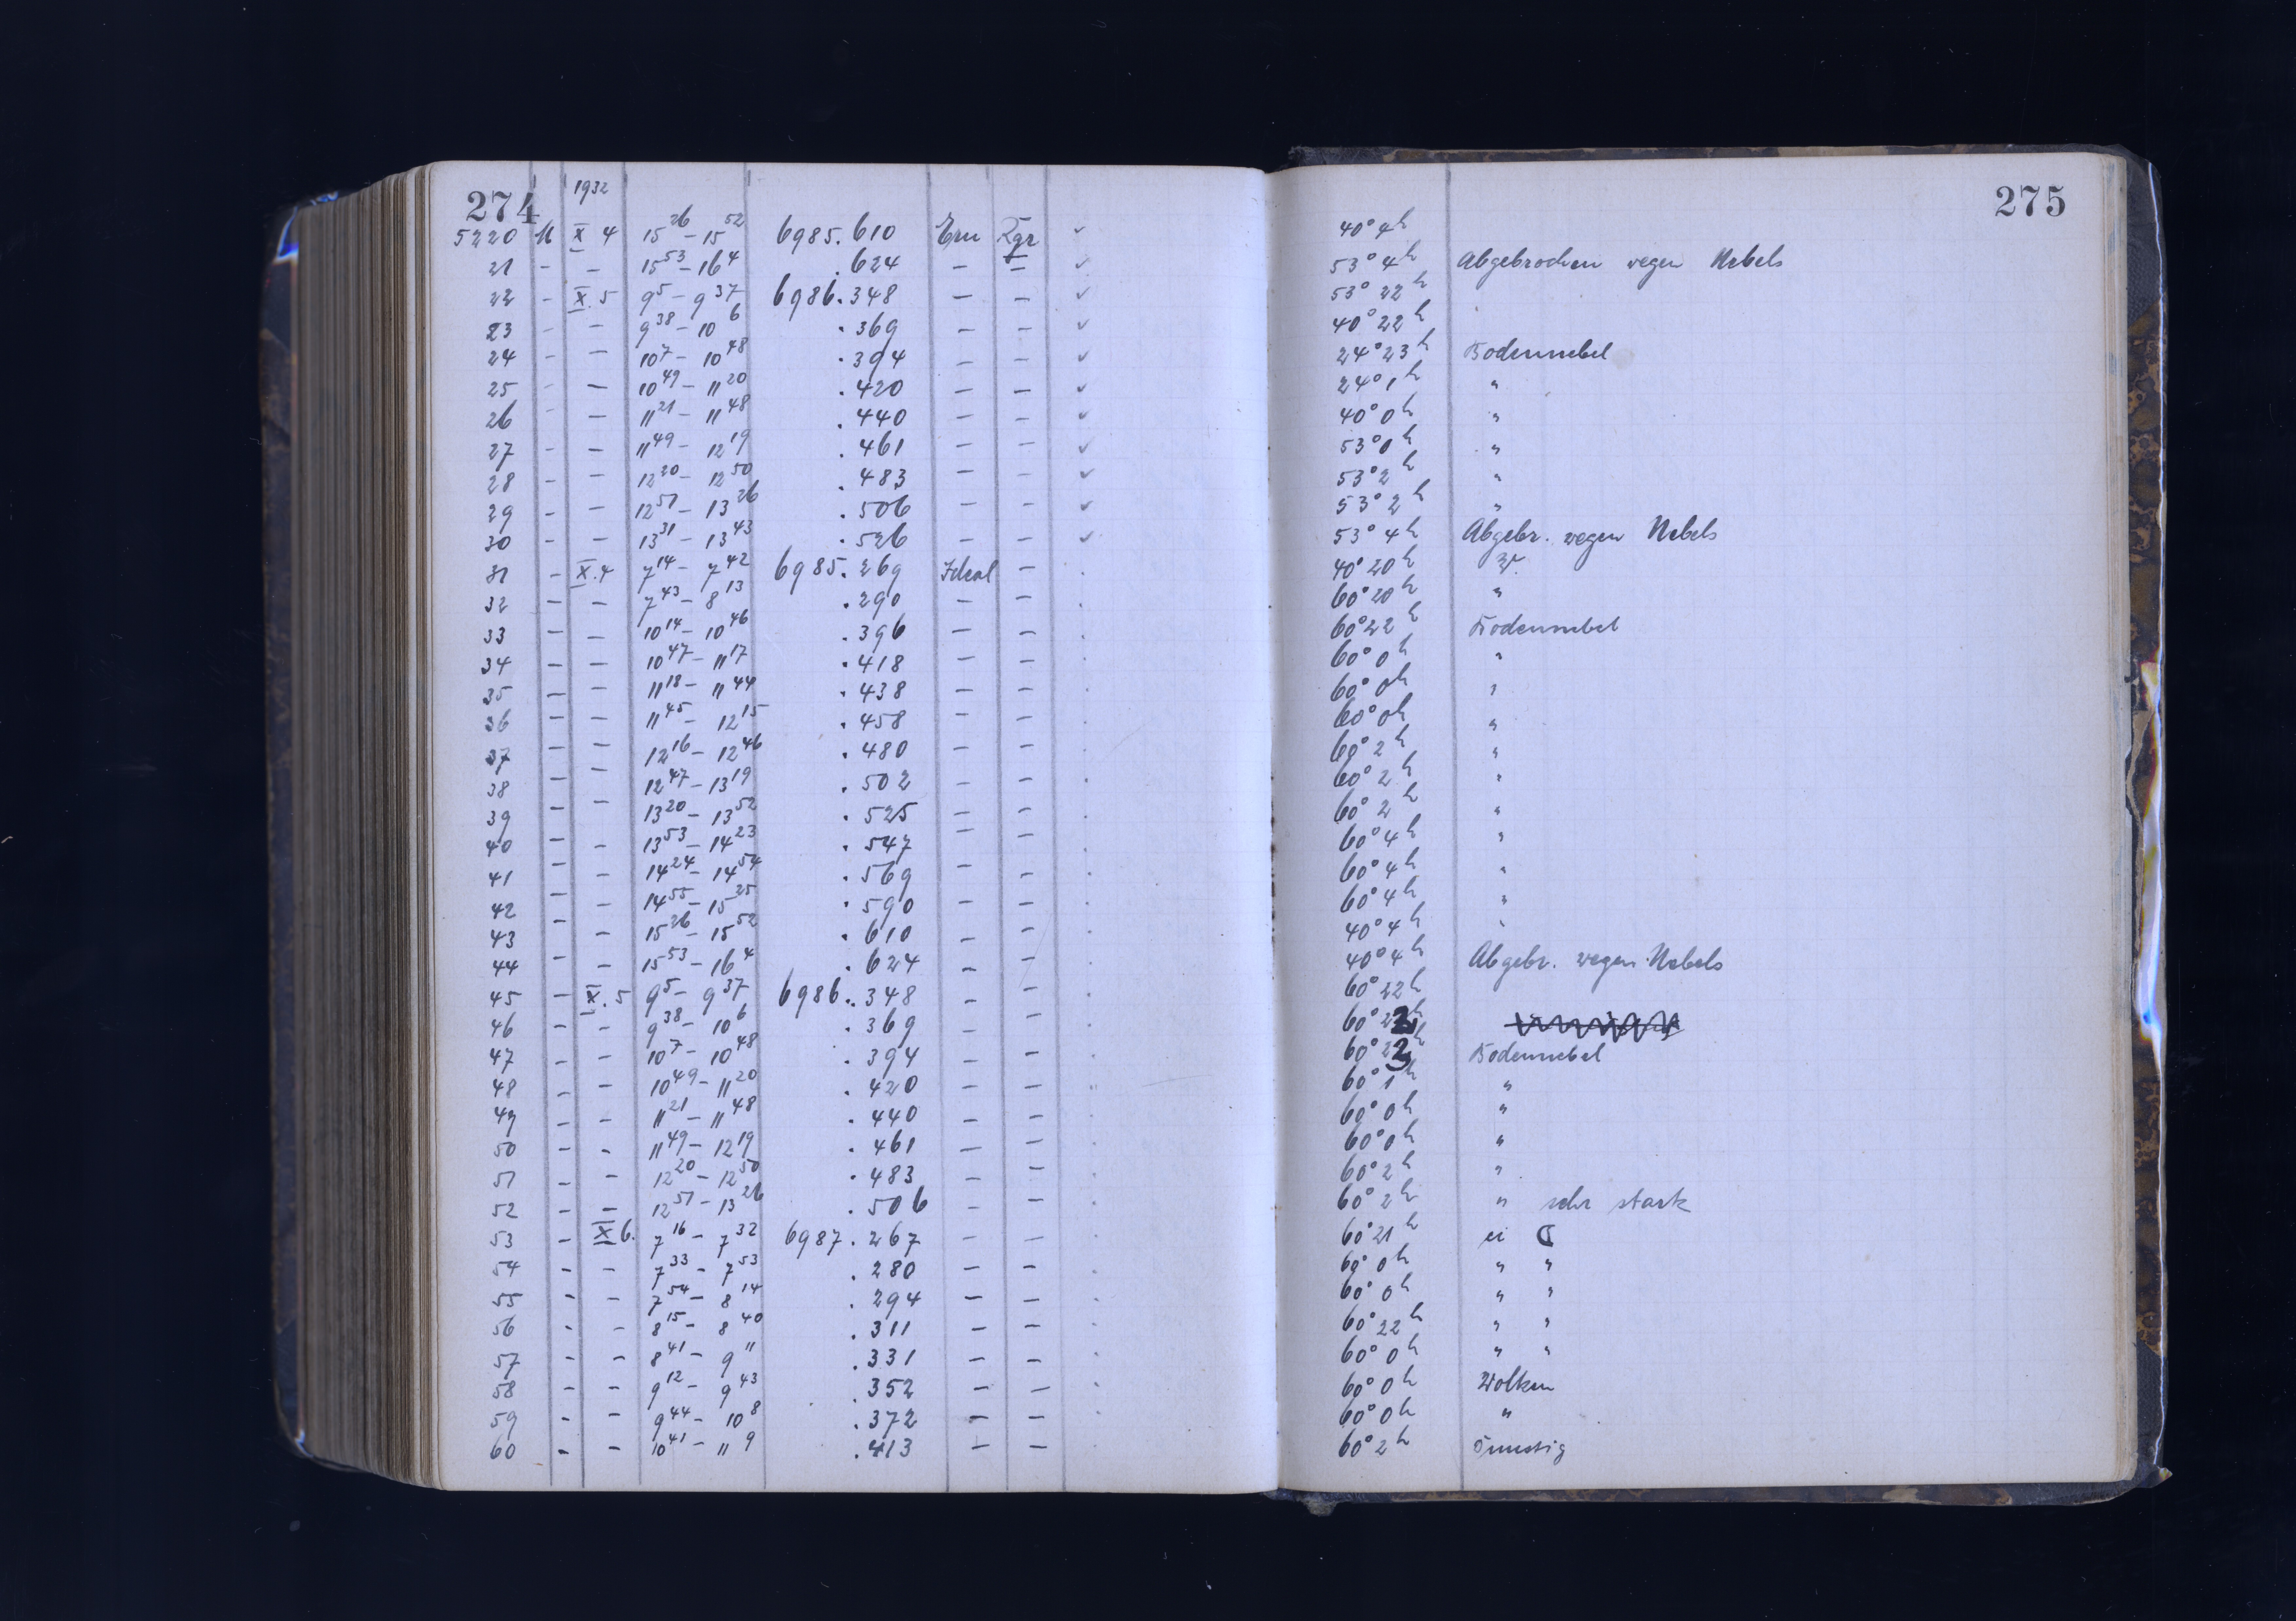 274 1932 275
5220 M X 4 15 26 – 15 52 6985.610 Ern Rgr ✓ 40° 4h
21 - – 15 53 – 16 4 .624 – – ✓ 53° 4h Abgebrochen wegen Nebels
22 - X.5 9 5 – 9 37 6986.348 – – ✓ 53° 22h
23 - – 9 38 – 10 6 .369 – – ✓ 40° 22h
24 - – 10 7 – 10 48 .394 – – ✓ 24° 23h Bodennebel
25 - – 10 49 – 11 20 .420 – – ✓ 24° 1h "
26 - – 11 21 – 11 48 .440 – – ✓ 40° 0h "
27 - – 11 49 – 12 19 .461 – – ✓ 53° 0h "
28 - – 12 20 – 12 50 .483 – – ✓ 53° 2h "
29 - – 12 51 – 13 26 .506 – – ✓ 53° 2h "
30 - – 13 31 – 13 43 .526 – – ✓ 53° 4h Abgebr. wegen Nebels
31 - X.4 7 14 – 7 42 6985.269 Ideal – . 40° 20h W.
32 – – 7 43 – 8 13 .290 – – . 60° 20h "
33 – – 10 14 – 10 46 .396 – – . 60° 22h Bodennebel
34 – – 10 47 – 11 17 .418 – – . 60° 0h "
35 – – 11 18 – 11 44 .438 – – . 60° 0h "
36 – – 11 45 – 12 15 .458 – – . 60° 0h "
37 – – 12 16 – 12 46 .480 – – . 60° 2h "
38 – – 12 47 – 13 19 .502 – – . 60° 2h "
39 – – 13 20 – 13 52 .525 – – . 60° 2h "
40 – – 13 53 – 14 23 .547 – – . 60° 4h "
41 – – 14 24 – 14 54 .569 – – . 60° 4h "
42 – – 14 55 – 15 25 .590 – – . 60° 4h "
43 – – 15 26 – 15 52 .610 – – . 40° 4h "
44 – – 15 53 – 16 4 .624 – – . 40° 4h Abgebr. wegen Nebels
45 – X.5 9 5 – 9 37 6986.348 – – . 60° 22h
46 – – 9 38 – 10 6 .369 – – . 60° 22h
47 – – 10 7 – 10 48 .394 – – . 60° 23h Bodennebel
48 – – 10 49 – 11 20 .420 – – . 60° 1h "
49 – – 11 21 – 11 48 .440 – – . 60° 0h "
50 – – 11 49 – 12 19 .461 – – . 60° 0h "
51 – – 12 20 – 12 50 .483 – – . 60° 2h "
52 – – 12 51 – 13 26 .506 – – . 60° 2h " sehr stark
53 – X 6. 7 16 – 7 32 6987.267 – – . 60° 21h ☾
54 – – 7 33 – 7 53 .280 – – . 60° 0h " "
55 – – 7 54 – 8 14 .294 – – . 60° 0h " "
56 – – 8 15 – 8 40 .311 – – . 60° 22h " "
57 – – 8 41 – 9 11 .331 – – . 60° 0h " "
58 – – 9 12 – 9 43 .352 – – . 60° 0h Wolken
59 – – 9 44 – 10 8 .372 – – . 60° 0h "
60 – – 10 41 – 11 9 .413 – – 60° 2h Dunstig